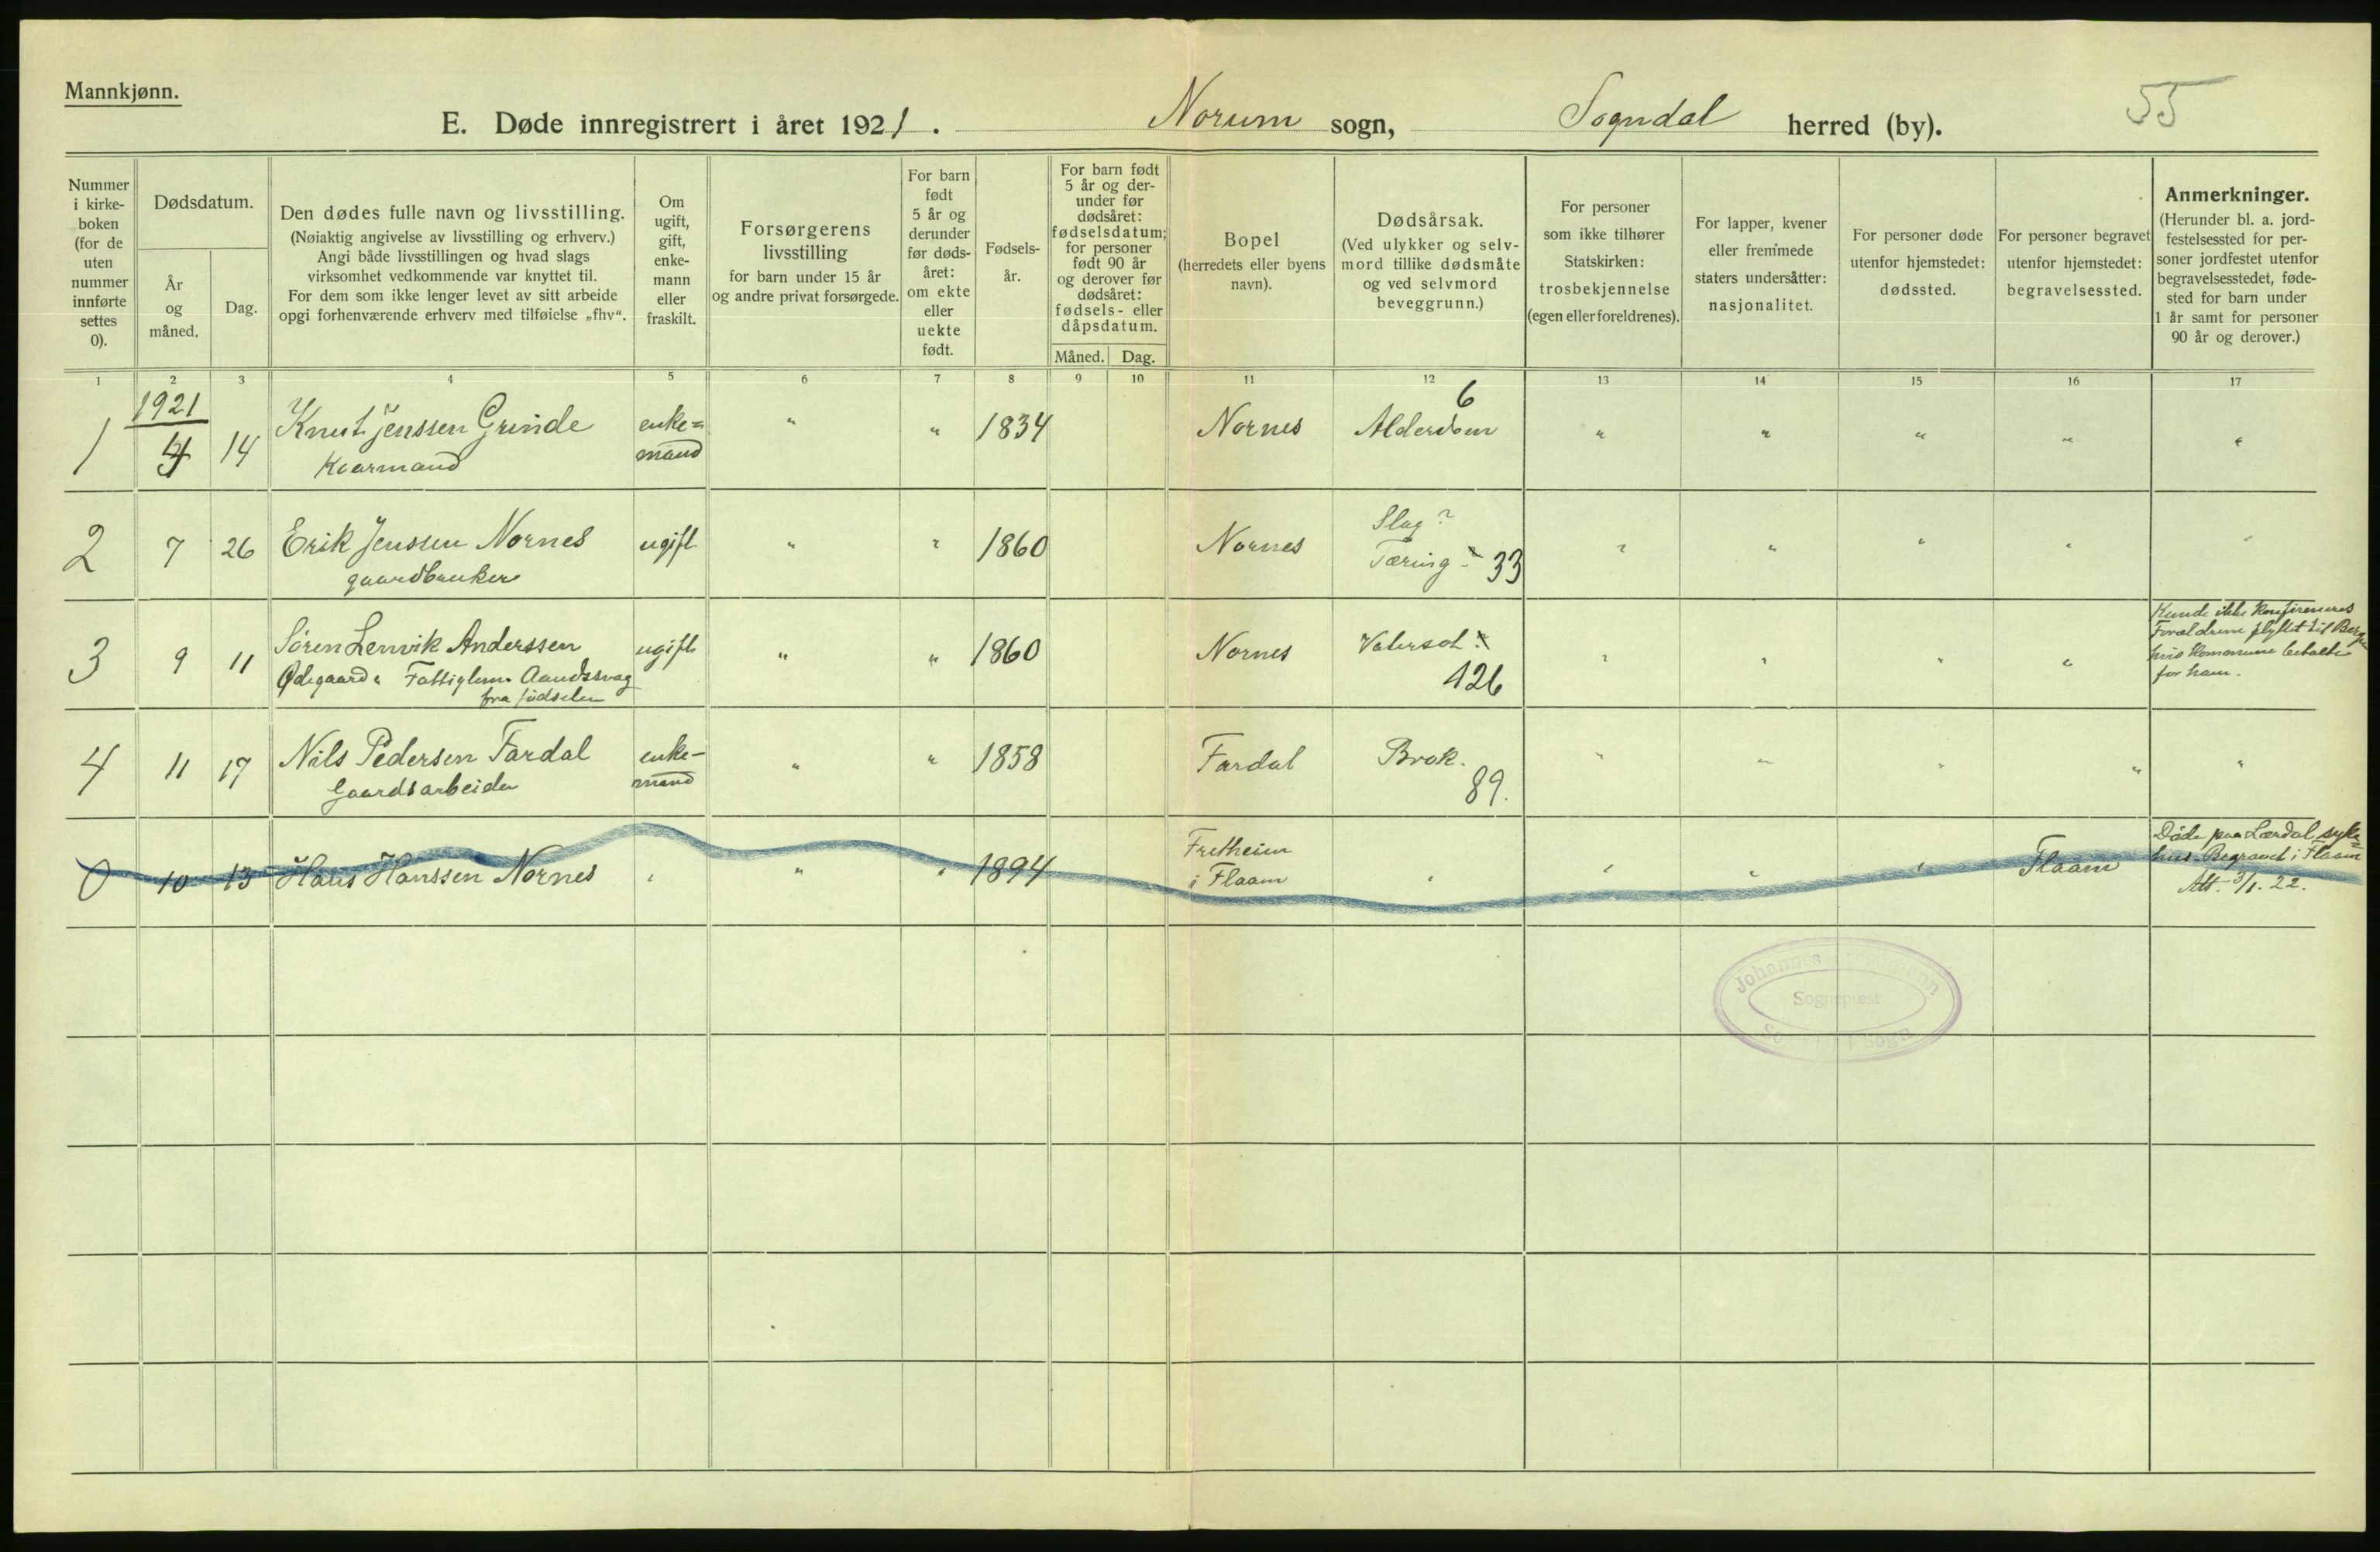 Mannkjønn.
E. Døde innregistrert i året 1921. Norum sogn, Sogndal herred (by).
55
Nummer
i kirke-
boken
(for de
uten
nummer
innførte
settes
0).
Dødsdatum.
År
og
måned.
Dag.
Den dødes fulle navn og livsstilling.
(Nøiaktig angivelse av livsstilling og erhverv.)
Angi både livsstillingen og hvad slags
virksomhet vedkommende var knyttet til.
For dem som ikke lenger levet av sitt arbeide
opgi forhenværende erhverv med tilføielse „fhv“.
Om
ugift,
gift,
enke-
mann
eller
fraskilt.
Forsørgerens
livsstilling
for barn under 15 år
og andre privat forsørgede.
For barn
født
5 år og
derunder
før døds-
året:
om ekte
eller
uekte
født.
Fødsels-
år.
For barn født
5 år og der-
under før
dødsåret:
fødselsdatum;
for personer
født 90 år
og derover før
dødsåret:
fødsels- eller
dåpsdatum.
Måned. Dag.
Bopel
(herredets eller byens
navn).
Dødsårsak.
(Ved ulykker og selv-
mord tillike dødsmåte
og ved selvmord
beveggrunn.)
For personer
som ikke tilhører
Statskirken:
trosbekjennelse
(egen eller foreldrenes).
For lapper, kvener
eller fremmede
staters undersåtter:
nasjonalitet.
For personer døde
utenfor hjemstedet:
dødssted.
For personer begravet
utenfor hjemstedet:
begravelsessted.
Anmerkninger.
(Herunder bl. a. jord-
festelsessted for per-
soner jordfestet utenfor
begravelsesstedet, føde-
sted for barn under
1 år samt for personer
90 år og derover.)
1 2 3 4 5 6 7 8 9 10 11 12 13 14 15 16 17
1921
6
1 4 14 Knut Jenssen Grinde enke= " " 1834 Nornes Alderdom " " " " "
Kaarmand mand
Slag ?
2 7 26 Erik Jenssen Nornes ugift " " 1860 Nornes Tæring ? 33 " " " " "
gaardbruker
3 9 11 Sören Lervik Anderssen ugift " " 1860 Nornes Vatersot " " " "
Ødegaard " Fattiglem. Aandssvag 126
fra födselen
Kunde ikke konfirmeres
Forældrene flyttet til Bergen
hvis Kommune betalte
for ham.
4 11 17 Nils Pedersen Fardal enke- " " 1858 Fardal Brok. " " " " "
Gaardsarbeider mand 89.
0 10 13 Hans Hanssen Nornes " " " 1894 Fretheim
i Flaam " " " " Flaam
Döde paa Lærdal syke=
hus. Begravet i Flaam
Att. 3/1. 22.
Johannes
Sogneprest
Sogn